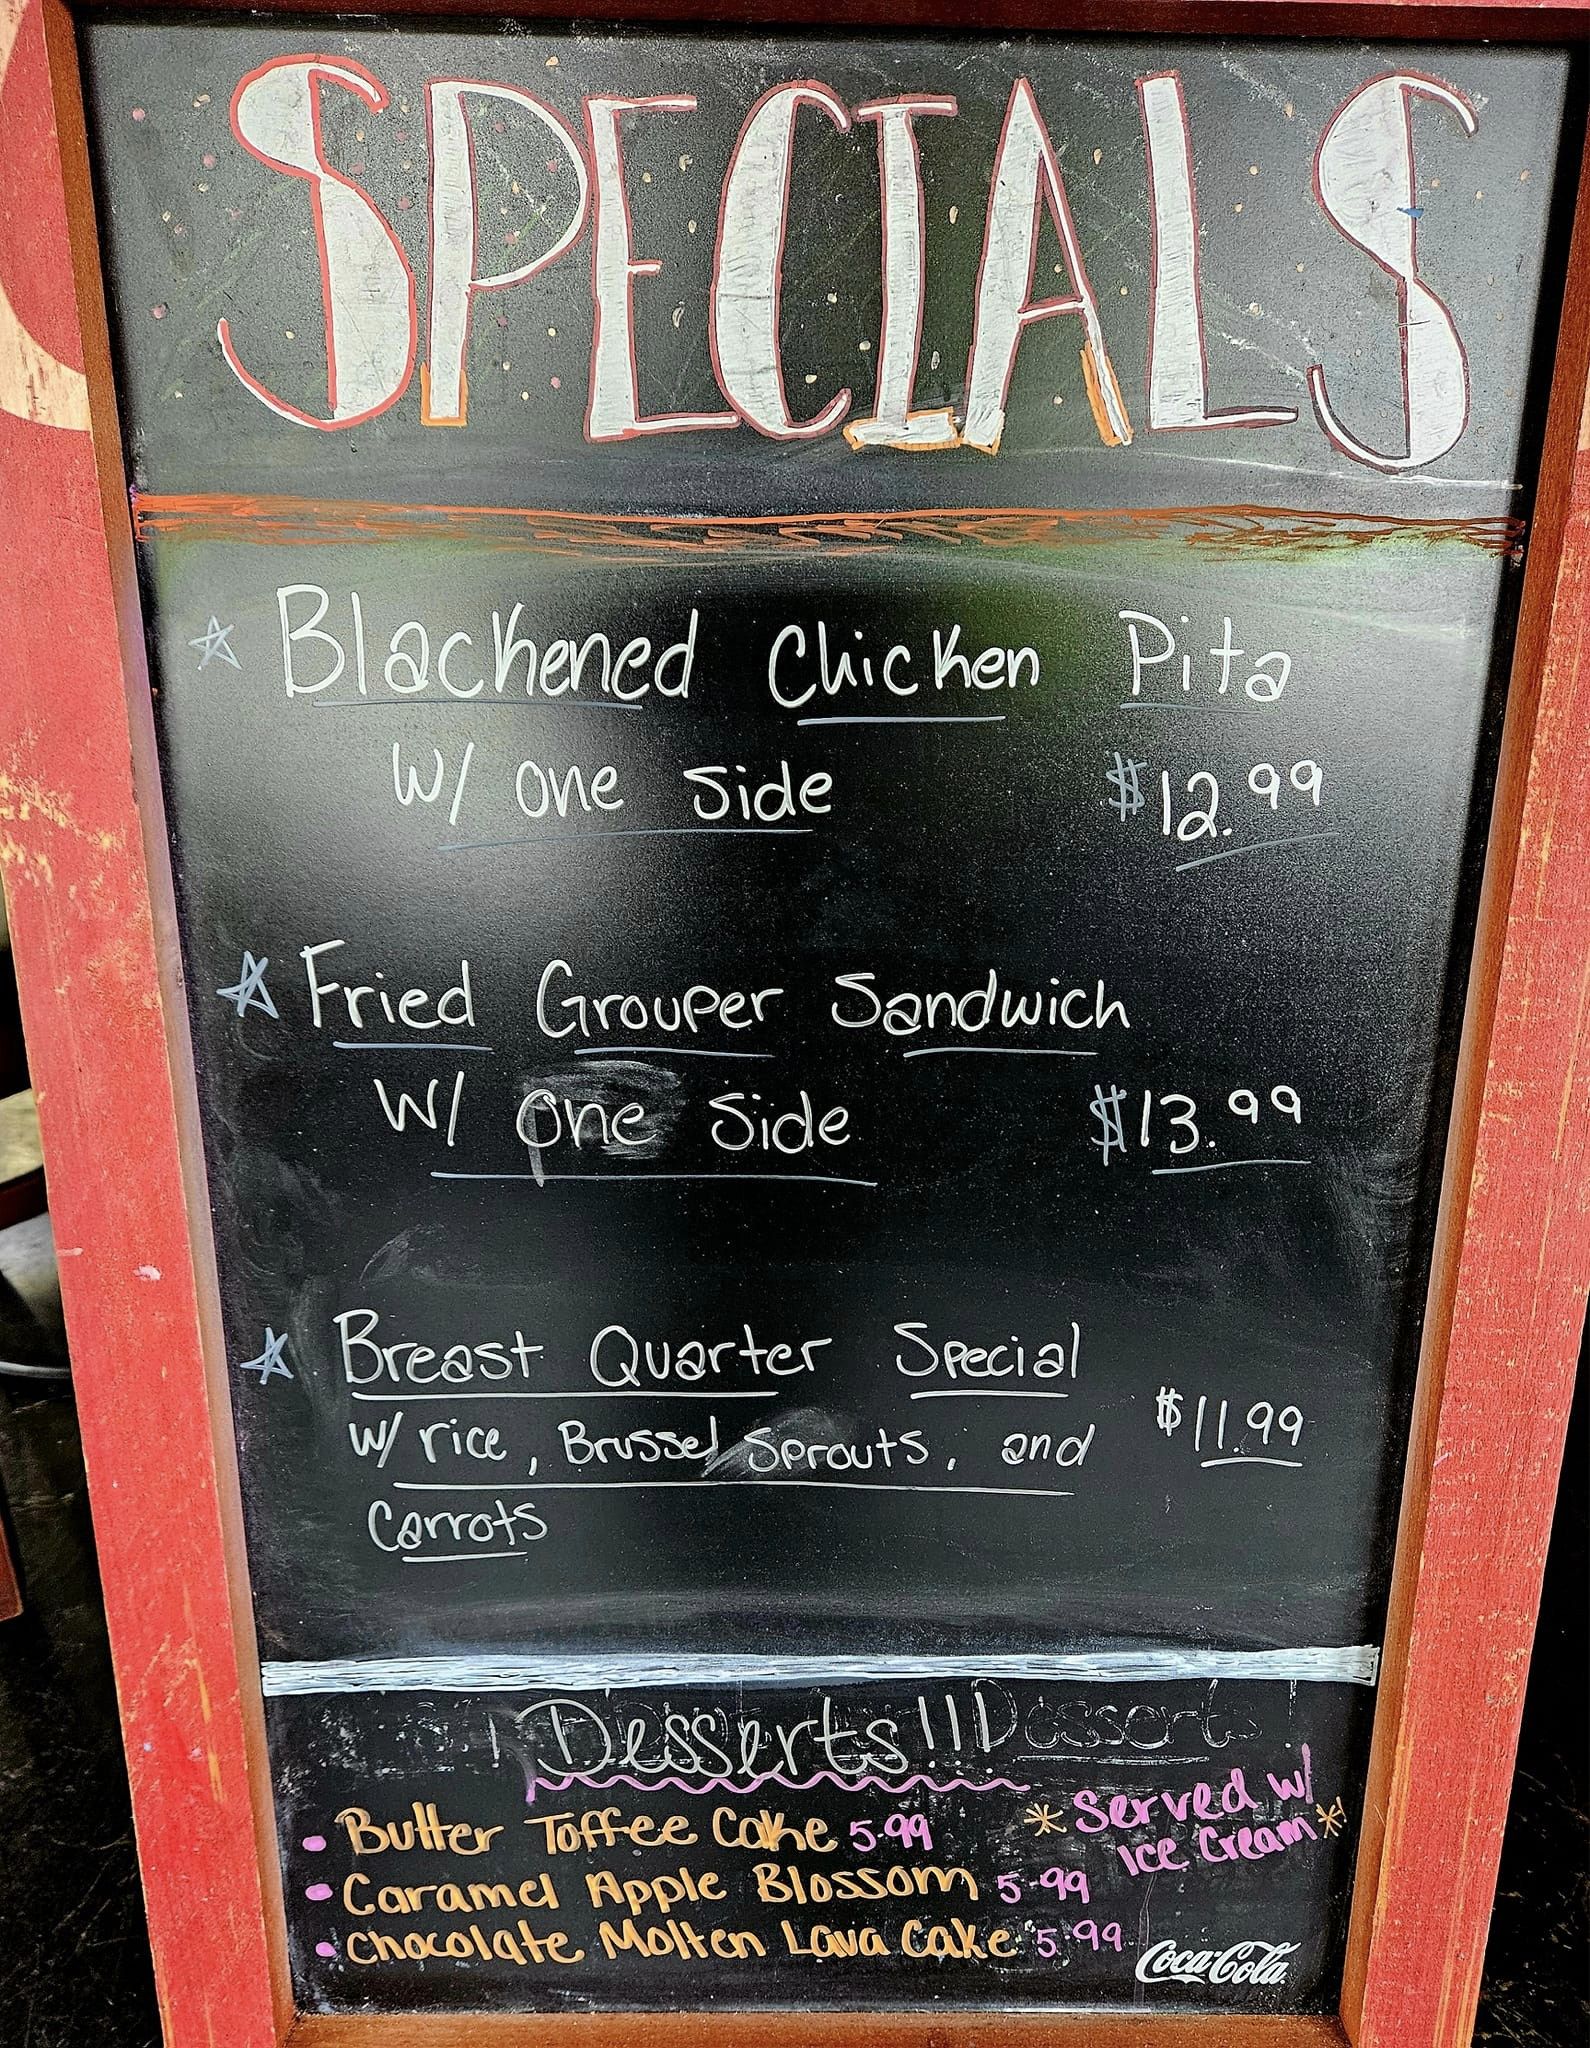 SPECIALS
Blackened Chicken Pita
W/ one side $12.99
Fried Grouper Sandwich
W/ one side $13.99
Breast Quarter Special
w/ rice, Brussel Sprouts, and $11.99
Carrots
Desserts!!!
Butter Toffee Cake 5.99
*Served w/
Ice Cream*
Caramel Apple Blossom 5.99
Chocolate Molten Lava Cake 5.99
Coca-Cola